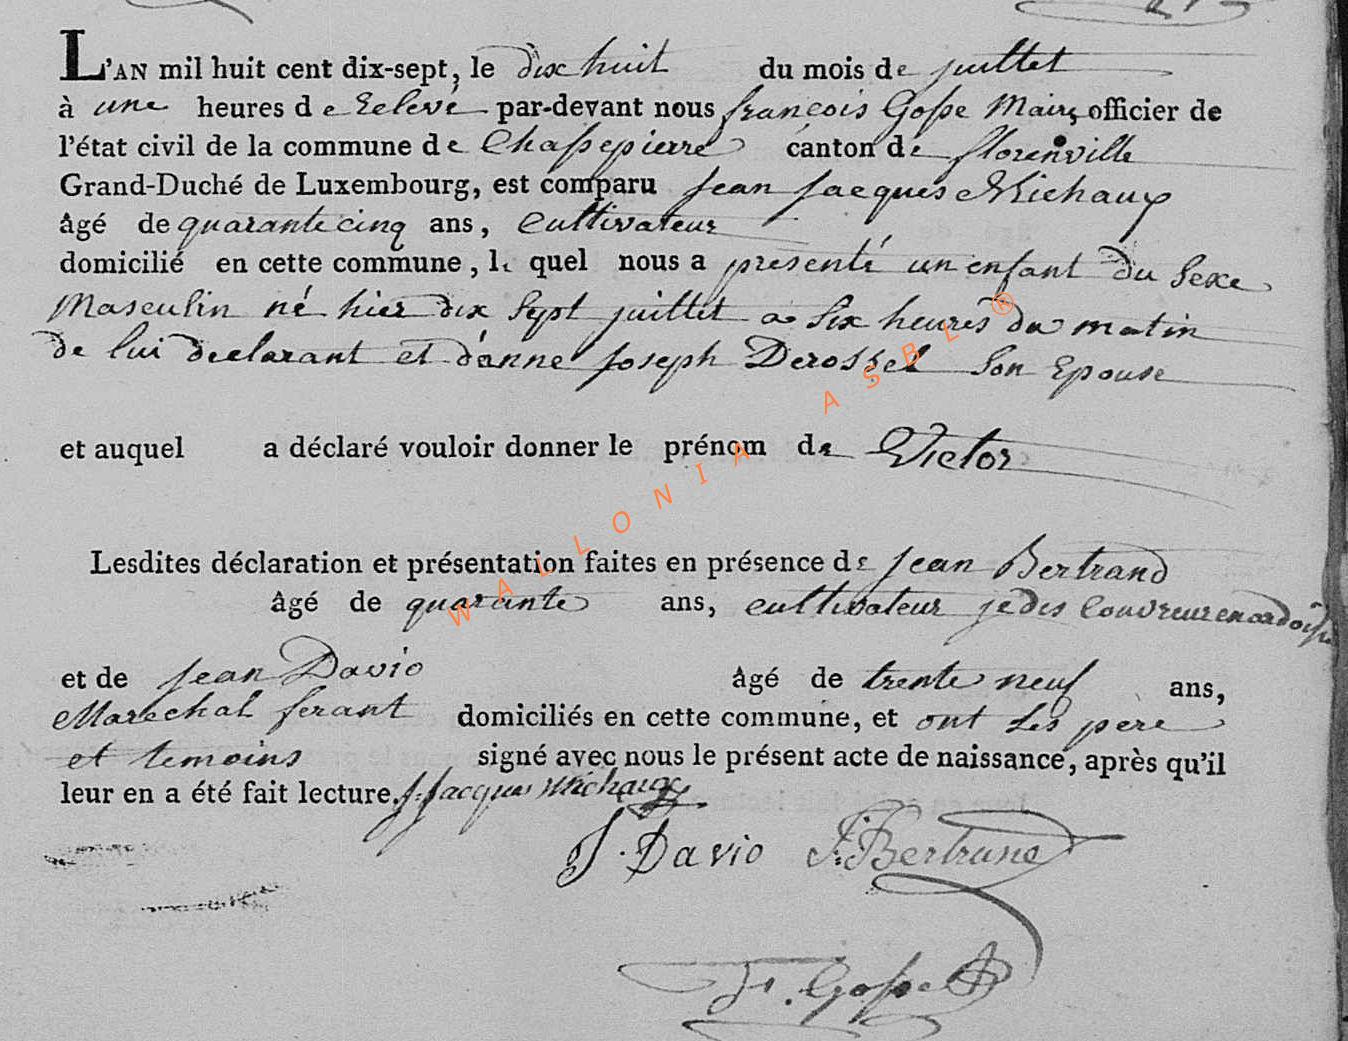 L'AN mil huit cent dix-sept, le dix huit du mois de juillet
à une heures de relevé par-devant nous françois Gosse Maire officier de
l'état civil de la commune de Chassepierre canton de florenville
Grand-Duché de Luxembourg, est comparu jean jacques Michaux
âgé de quarante cinq ans, cultivateur
domicilié en cette commune, le quel nous a présenté un enfant du Sexe
Masculin né hier dix Sept juillet a Six heures du matin
de lui declarant et d'anne joseph Derossel Son Epouse
et auquel a déclaré vouloir donner le prénom de Victor
Lesdites déclaration et présentation faites en présence de jean Bertrand
âgé de quarante ans, cultivateur je dis Couvreur en ardoisse
et de jean David âgé de trente neuf ans,
Marechal ferant domiciliés en cette commune, et ont Les père
et temoins signé avec nous le présent acte de naissance, après qu'il
leur en a été fait lecture. J. Jacques Michaux
J. David J. Bertrand
F. Gosse
WALLONIA ASBL ®